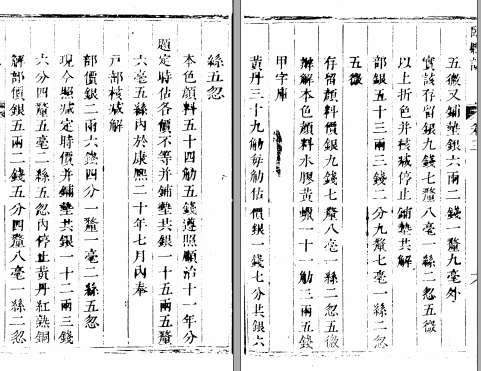 五微又鋪墊銀六兩二錢一釐九毫外
實該存留銀九錢七釐八毫一絲二忽五微
以上折色并核減停止鋪墊共解
部銀五十三兩三錢二分九釐七毫一絲二忽
五微
存留顏料價銀九錢七釐八毫一絲二忽五微
辦解本色顏料水膠黃蠟一十一觔三兩五錢
甲字庫
黃丹三十九觔每觔估價銀一錢七分共銀六
絲五忽
本色顏料五十四觔五錢遵照順治十一年分
題定時估各價不等并鋪墊共銀一十五兩五釐
六毫五絲內於康熙二十年七月內奉
戶部核減解
部價銀二兩六錢四分一釐一毫二絲五忽
現今照減定時價并鋪墊共銀一十二兩三錢
六分四釐五毫二絲五忽內停止黃丹紅熟銅
解部價銀五兩二錢五分四釐八毫一絲二忽